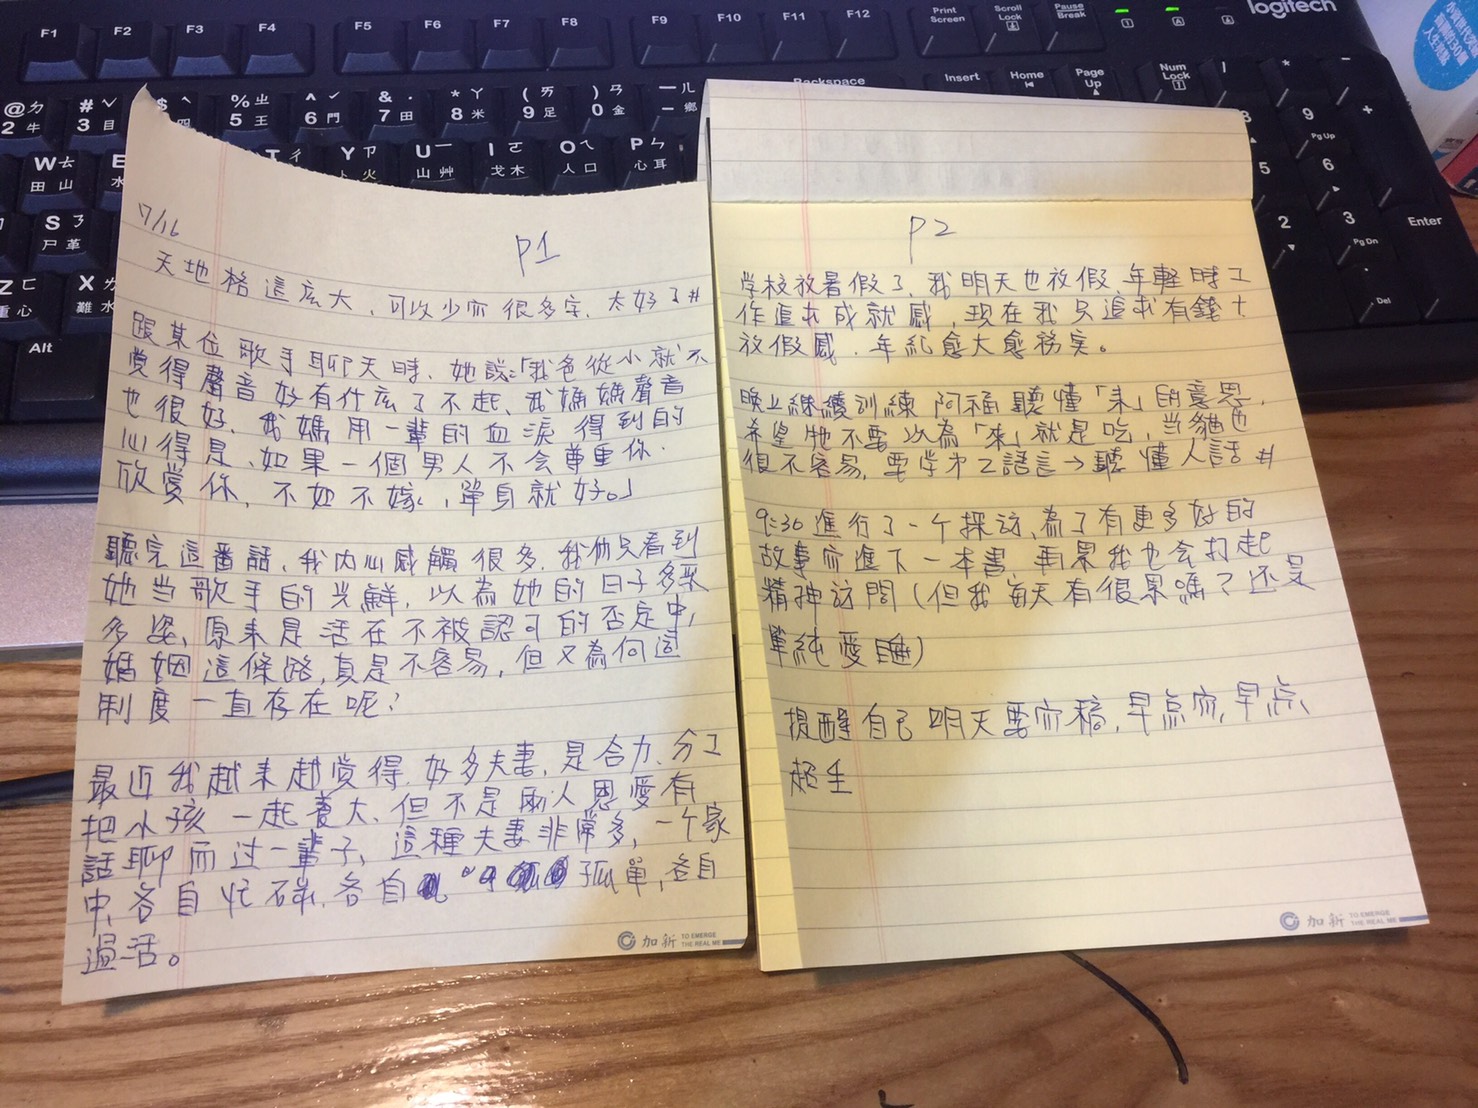 7/16
P1
天地格這広大、可以少寫很多字、太好了#
跟某位歌手聊天時、她說:「我爸從小就不
覚得聲音好有什広了不起、我媽媽聲音
也很好、我媽用一輩的血淚得到的
心得是、如果一個男人不会尊重你.
欣賞你，不如不嫁，單身就好。」
聽完這番話、我內心感觸很多，我們只看到
她当歌手的光鮮，以為她的日子多采
多姿，原來是活在不被認可的否定中，
婚姻這條路，真是不容易，但又為何這
制度一直存在呢？
最近我越來越覚得，好多夫妻，是合力、分工
把小孩一起養大、但不是兩人恩愛有
話聊而过一輩子、這種夫妻非常多，一个家
中，各自忙碌，各自孤單，各自
過活。
加新 TO EMERGE
THE REAL ME
P2
学校放暑假了，我明天也放假，年輕時工
作追求成就感，現在我只追求有錢+
放假感，年紀愈大愈務实。
晚上継續訓練阿福聽懂「来」的意思，
希望牠不要以為「來」就是吃，当貓也
很不容易，要學第2語言→聽懂人話#
9:30進行了一个採訪，為了有更多好的
故事寫進下一本書，再累我也会打起
精神訪問（但我每天有很累嗎？还是
單純愛睡）
提醒自己明天要寫稿，早点寫，早点、
超生
加新 TO EMERGE
THE REAL ME
logitech
F1
F2
F3
F4
F5
F6
F7
F8
F9
F10
F11
F12
Print
Screen
Scroll
Lock
Pause
Break
Backspace
Insert
Home
Page
Up
Num
Lock
Enter
Alt
Pg Up
Pg Dn
Del